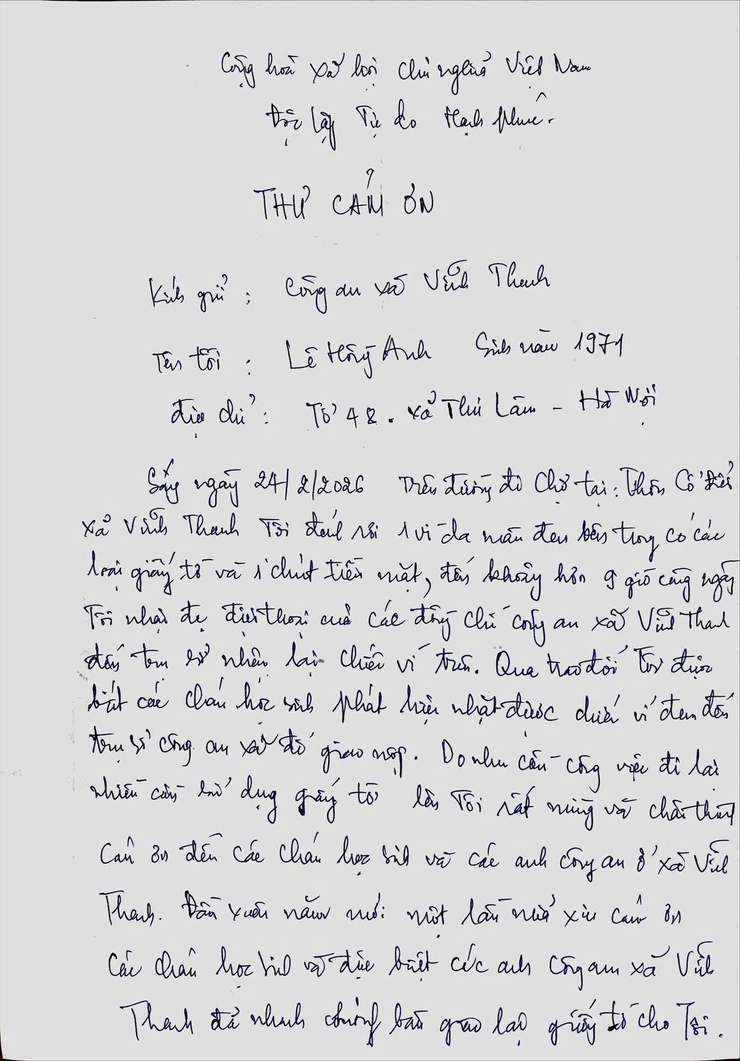 Cộng hoà xã hội chủ nghĩa Việt Nam
Độc lập Tự do Hạnh phúc.
THƯ CẢM ƠN
Kính gửi : Công an xã Vĩnh Thanh
Tên tôi : Lê Hồng Anh Sinh năm 1971
địa chỉ : Tổ 48. xã Thư Lâm - Hà Nội
Sáng ngày 24/2/2026 Trên đường đi chợ tại: Thôn Cổ
xã Vĩnh Thanh Tôi đánh rơi 1 ví da màu đen bên trong có các
loại giấy tờ và 1 chút tiền mặt, đến khoảng hơn 9 giờ cùng ngày
Tôi nhận đc điện thoại của các đồng chí công an xã Vĩnh Thanh
đến trụ sở nhận lại chiếc ví trên. Qua trao đổi Tôi được
biết các cháu học sinh phát hiện nhặt được chiếc ví đen đến
trụ sở công an xã để giao nộp. Do nhu cầu công việc đi lại
nhiều cần sử dụng giấy tờ lên Tôi rất mừng và chân thành
cảm ơn đến các cháu học sinh và các anh công an ở xã Vĩnh
Thanh. Đầu xuân năm mới một lần nữa xin cảm ơn
các cháu học sinh và đặc biệt các anh công an xã Vĩnh
Thanh đã nhanh chóng bàn giao lại giấy tờ cho Tôi.